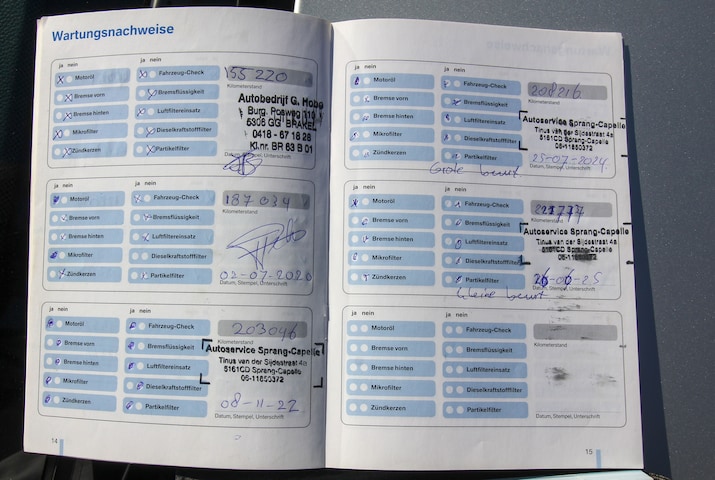 Wartungsnachweise
ja nein
ja nein
Motoröl
Fahrzeug-Check
155 220
Kilometerstand
Bremse vorn
Bremsflüssigkeit
Bremse hinten
Luftfiltereinsatz
Mikrofilter
Dieselkraftstofffilter
Zündkerzen
Partikelfilter
Autobedrijf G.
Burg. Posweg 110
5306 GG BRAKEL
0418 - 67 18 28
Kl.nr. BR 63 B 01
Datum, Stempel, Unterschrift
ja nein
ja nein
Motoröl
Fahrzeug-Check
187034
Kilometerstand
Bremse vorn
Bremsflüssigkeit
Bremse hinten
Luftfiltereinsatz
Mikrofilter
Dieselkraftstofffilter
Zündkerzen
Partikelfilter
02-07-2020
Datum, Stempel, Unterschrift
ja nein
ja nein
Motoröl
Fahrzeug-Check
203046
Kilometerstand
Bremse vorn
Bremsflüssigkeit
Bremse hinten
Luftfiltereinsatz
Mikrofilter
Dieselkraftstofffilter
Zündkerzen
Partikelfilter
Autoservice Sprang-Capelle
Tinus van der Sijdestraat 4a
5161CD Sprang-Capelle
06-11850372
08-11-22
Datum, Stempel, Unterschrift
14
ja nein
ja nein
Motoröl
Fahrzeug-Check
208216
Kilometerstand
Bremse vorn
Bremsflüssigkeit
Bremse hinten
Luftfiltereinsatz
Mikrofilter
Dieselkraftstofffilter
Zündkerzen
Partikelfilter
Autoservice Sprang-Capelle
Tinus van der Sijdestraat 4a
5161CD Sprang-Capelle
06-11850372
25-07-2024
Datum, Stempel, Unterschrift
Grote beurt
ja nein
ja nein
Motoröl
Fahrzeug-Check
Kilometerstand
Bremse vorn
Bremsflüssigkeit
Bremse hinten
Luftfiltereinsatz
Mikrofilter
Dieselkraftstofffilter
Zündkerzen
Partikelfilter
Autoservice Sprang-Capelle
Tinus van der Sijdestraat 4a
5161CD Sprang-Capelle
26-06-25
Datum, Stempel, Unterschrift
kleine beurt
ja nein
ja nein
Motoröl
Fahrzeug-Check
Kilometerstand
Bremse vorn
Bremsflüssigkeit
Bremse hinten
Luftfiltereinsatz
Mikrofilter
Dieselkraftstofffilter
Zündkerzen
Partikelfilter
Datum, Stempel, Unterschrift
15